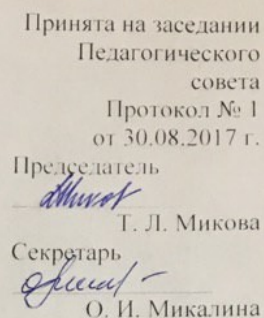 Принята на заседании
Педагогического
совета
Протокол № 1
от 30.08.2017 г.
Председатель
Т. Л. Микова
Секретарь
О. И. Микалина